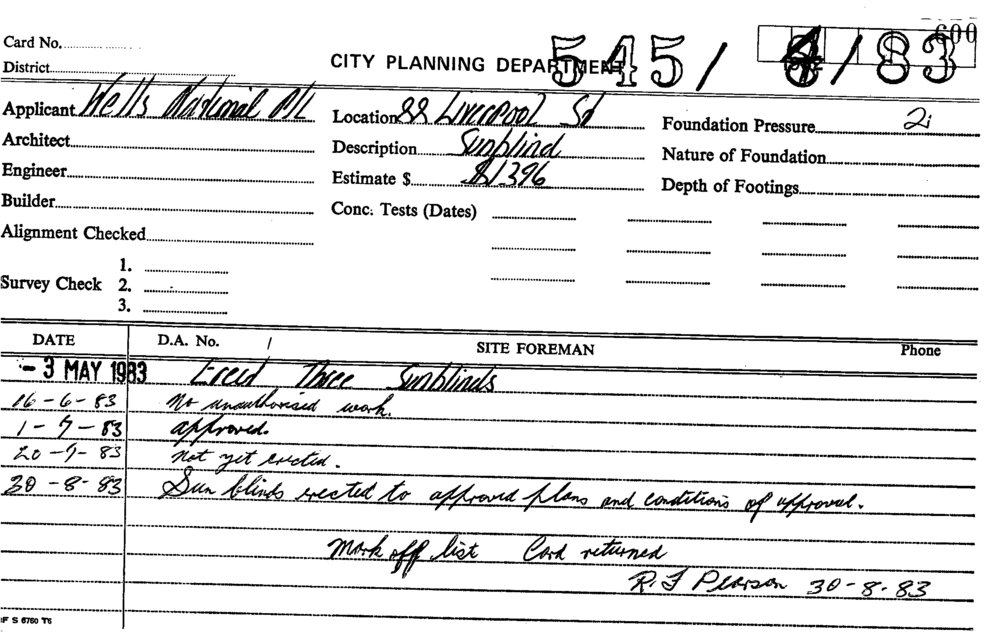 600
Card No.
CITY PLANNING DEPARTMENT 545/4/83
District
Applicant Wells National P/L Location 88 Liverpool St Foundation Pressure 2i
Architect Description Sunblind Nature of Foundation
Engineer Estimate $ $1396 Depth of Footings
Builder Conc. Tests (Dates)
Alignment Checked
1.
Survey Check 2.
3.
DATE D.A. No. / SITE FOREMAN Phone
- 3 MAY 1983 Erect Three Sunblinds
16-6-83 No unauthorised work.
1-7-83 approved.
20-7-83 Not yet erected.
30-8-83 Sun blinds erected to approved plans and conditions of approval.
Mark off list Card returned
R. J Pearson 30-8-83
F S 6760 T6